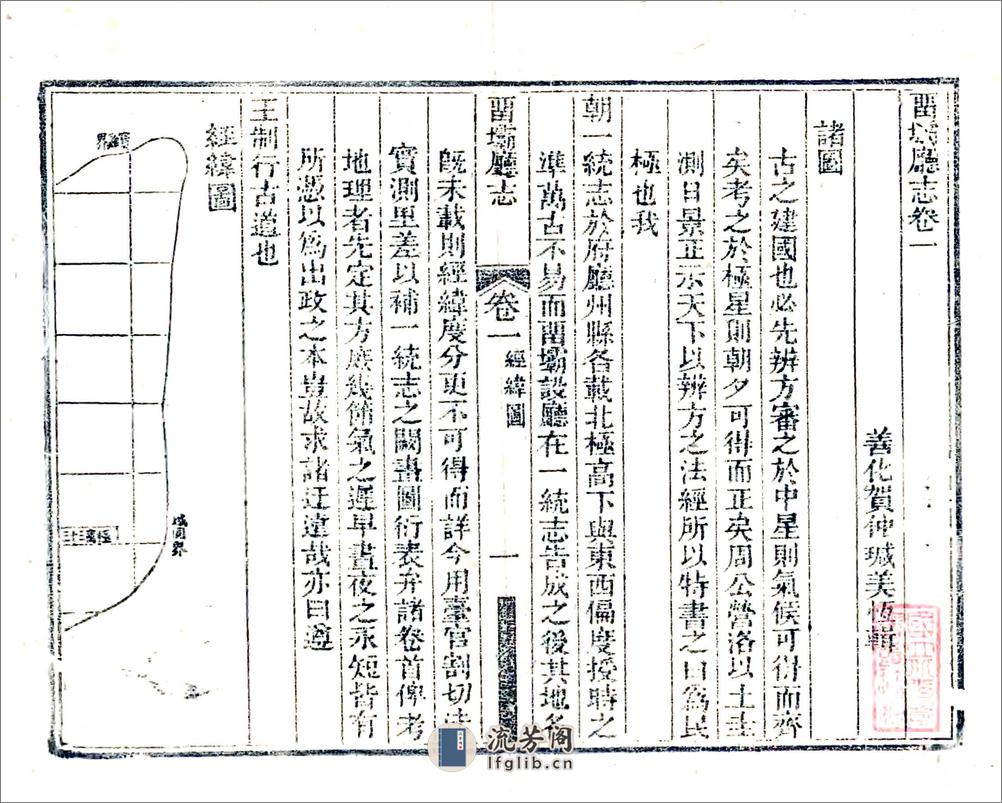 畱壩廳志卷一
善化賀仲瑊美恆輯
諸圖
古之建國也必先辨方審之於中星則氣候可得而齊
矣考之於極星則朝夕可得而正矣周公營洛以土圭
測日景正示天下以辨方之法經所以特書之曰爲民
極也我
朝一統志於府廳州縣各載北極高下與東西偏度授時之
準萬古不易而畱壩設廳在一統志告成之後其地名
畱壩廳志
卷一
經緯圖
一
旣未載則經緯度分更不可得而詳今用臺官割切法
實測里差以補一統志之闕畫圖衍表弁諸卷首俾考
地理者先定其方庶幾節氣之遲早晝夜之永短皆有
所憑以爲出政之本豈故求諸迂遠哉亦曰遵
王制行古道也
經緯圖
城固界
流芳阁
lfglib.cn